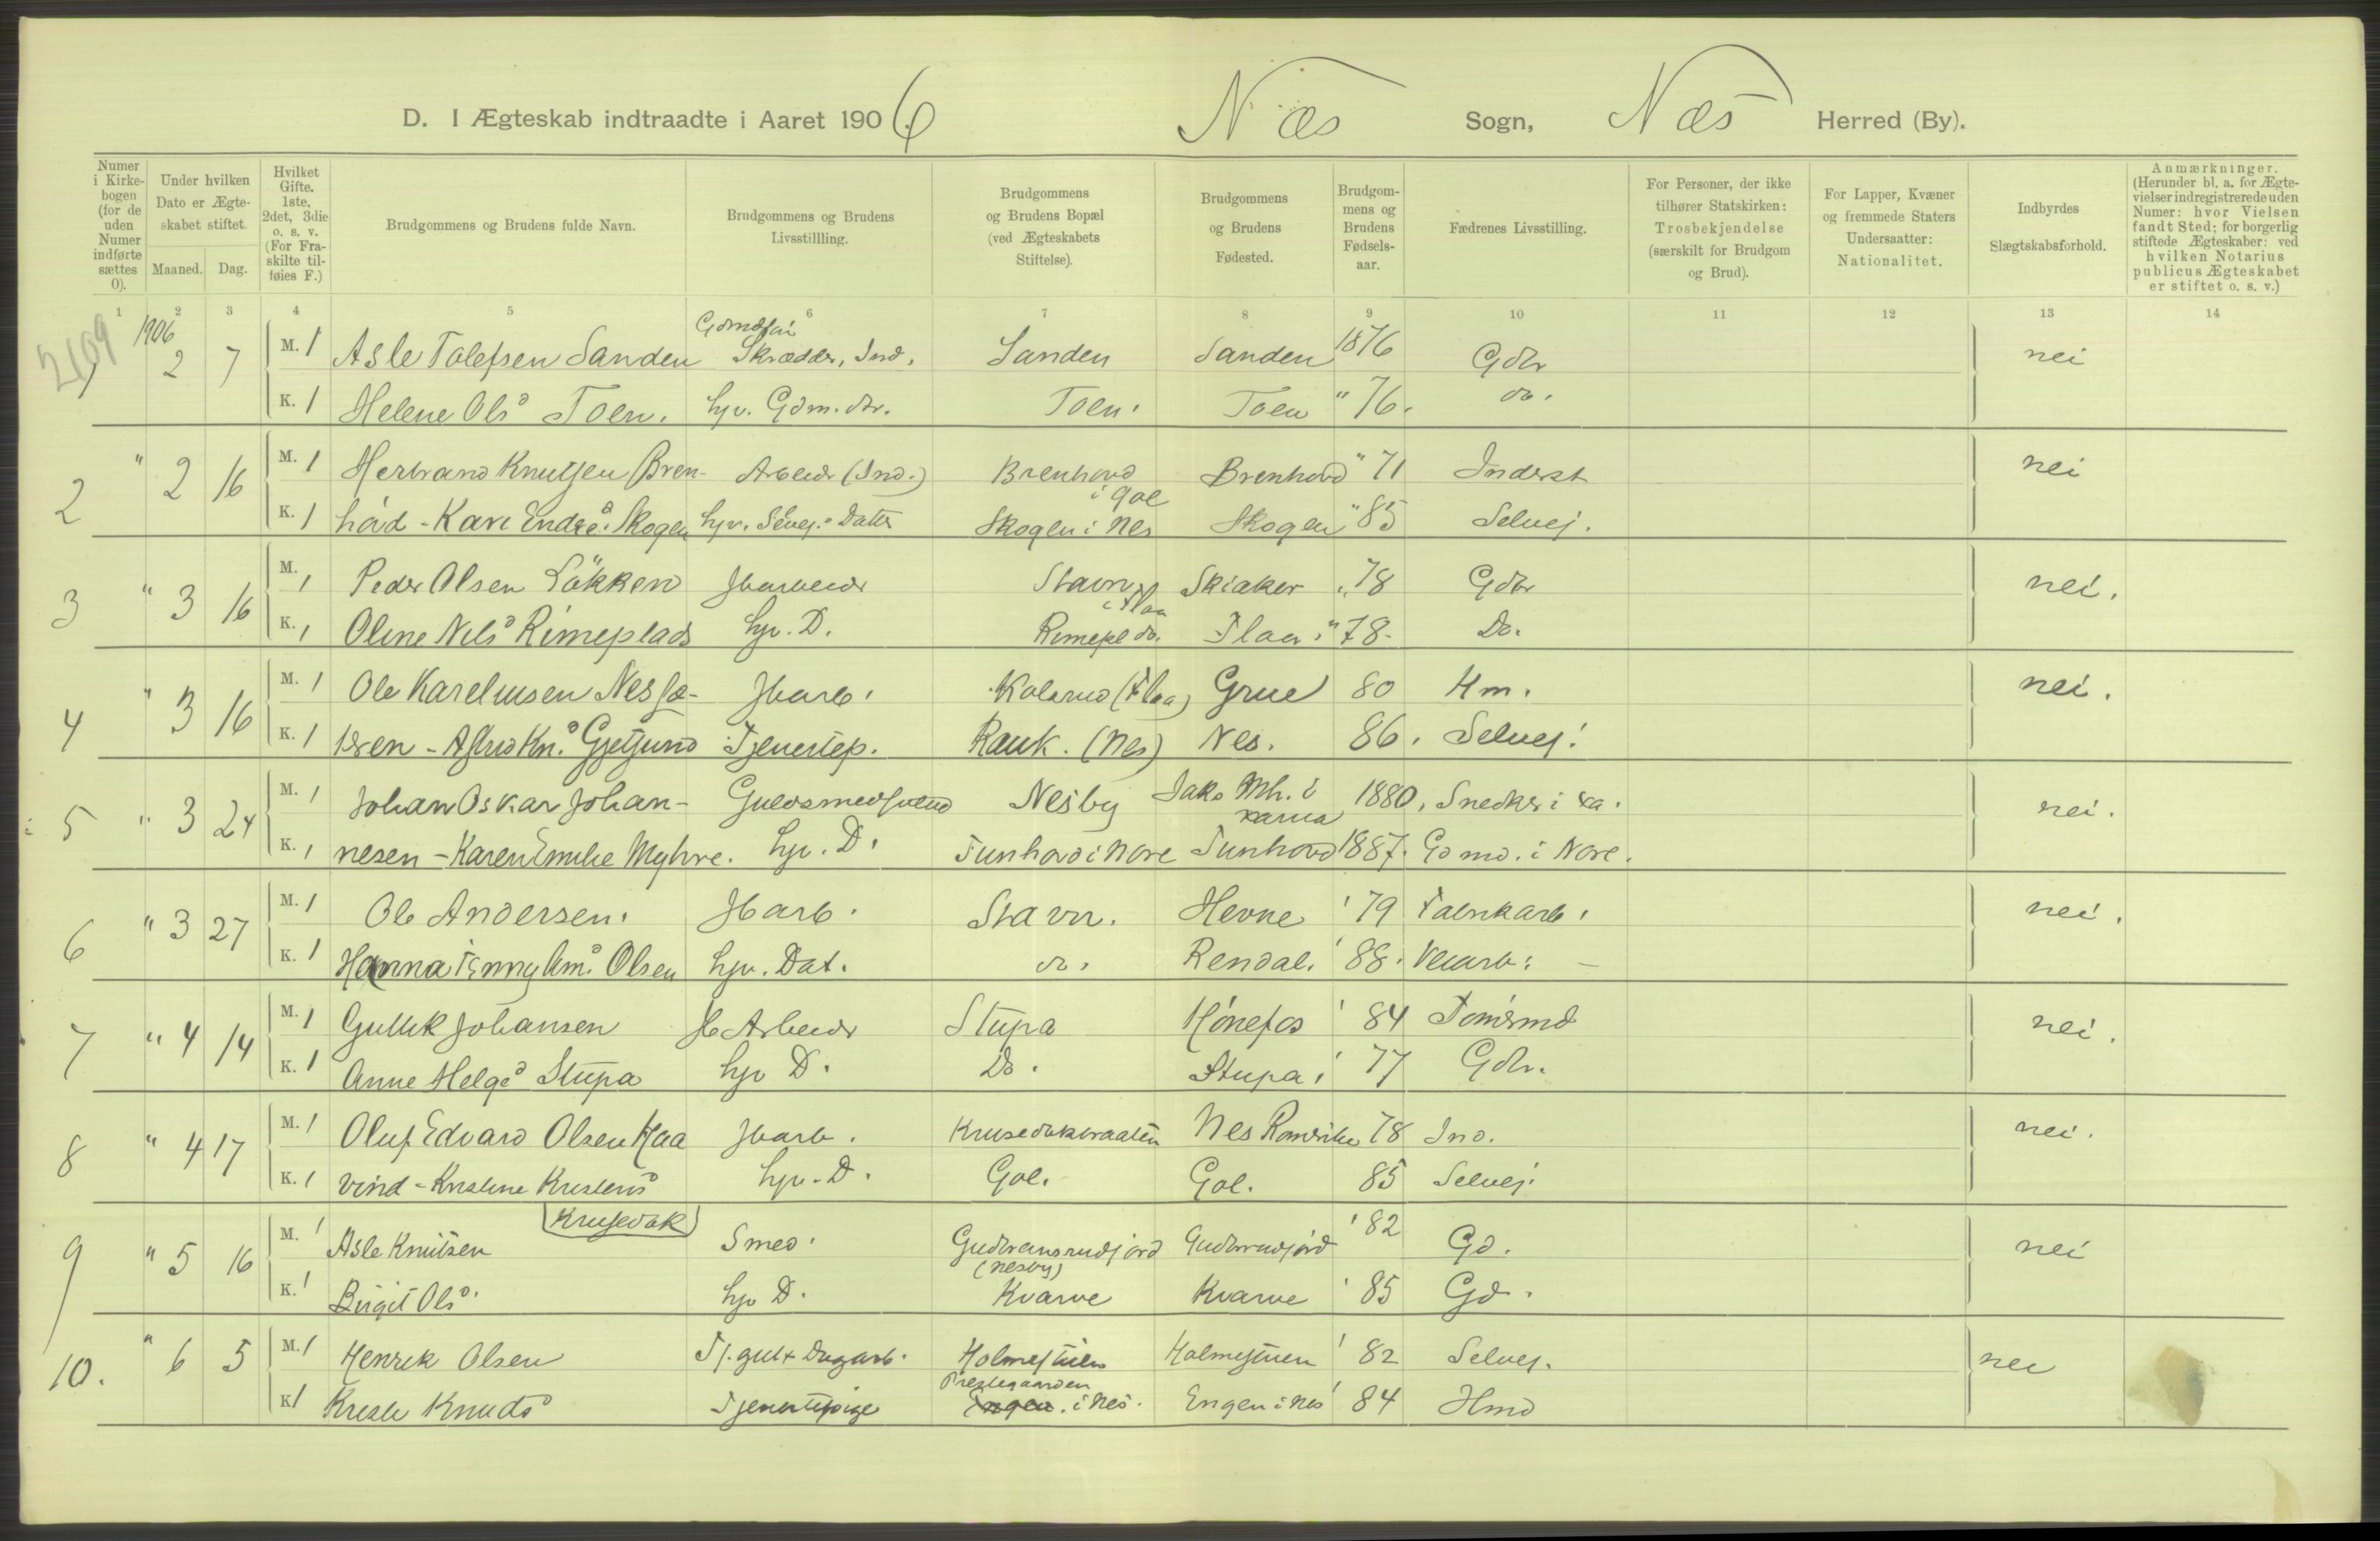 D. I Ægteskab indtraadte i Aaret 1906. Næs Sogn, Næs Herred (By).
Numer i Kirkebogen (for de uden Numer indførte sættes 0).
Under hvilken Dato er Ægteskabet stiftet.
Maaned. Dag.
Hvilket Gifte. 1ste, 2det, 3die o. s. v. (For Fraskilte tilføies F.)
Brudgommens og Brudens fulde Navn.
Brudgommens og Brudens Livsstillling.
Brudgommens og Brudens Bopæl (ved Ægteskabets Stiftelse).
Brudgommens og Brudens Fødested.
Brudgommens og Brudens Fødselsaar.
Fædrenes Livsstilling.
For Personer, der ikke tilhører Statskirken: Trosbekjendelse (særskilt for Brudgom og Brud).
For Lapper, Kvæner og fremmede Staters Undersaatter: Nationalitet.
Indbyrdes Slægtskabsforhold.
Anmærkninger. (Herunder bl. a. for Ægtevielser indregistrerede uden Numer: hvor Vielsen fandt Sted; for borgerlig stiftede Ægteskaber: ved hvilken Notarius publicus Ægteskabet er stiftet o. s. v.)
1 2 3 4 5 6 7 8 9 10 11 12 13 14
2109
1906
2 7 M. 1 Asle Tolefsen Sanden Skrædder, Ind. Sanden Sanden 1876 Gdbr nei
K. 1 Helene Olsd Toen. hjv. Gdm. dtr. Toen. Toen " 76. do.
2 " 2 16 M. 1 Herbrand Knutsen Bren- Arbeider (Ind.) Brenhovd i Gol Brenhovd " 71 Inderst nei
K. 1 hovd - Kari Endred. Skogen hjv. Selvej. Datter Skogen i Nes Skogen " 85 Selvej.
3 " 3 16 M. 1 Peder Olsen Løkken Jbarbeider Stavn i Flaa Skiaker " 78 Gdbr nei.
K. 1 Oline Nilsd Rimeplads hjv. D. Rimepl do. Flaa " 78. Do.
4 " 3 16 M. 1 Ole Kareliusen Nessæ- Jbarb. Kolsrud (Flaa) Grue 80 Hm. nei.
K. 1 teren - Astrid Kn.d Gjetsund Tjenestep. Rauk. (Nes) Nes. 86. Selvej.
5 " 3 24 M. 1 Johan Oskar Johan- Guldsmedsvend Nesby 1880. Snedker i nei.
K. 1 nesen - Karen Emilie Myhre. hjv. D. Tunhovd i Nore Tunhovd 1887. Gdmd. i Nore.
6 " 3 27 M. 1 Ole Andersen. Jbarb. Stavn. Hevne 79 Fabrikarb. nei.
K. 1 Hanna Olsen hjv. Dat. do. Rendal. 88. Veiarb. -
7 " 4 14 M. 1 Gullik Johansen Jb Arbeider Stupa Hønefos 84 Tømrmd nei.
K. 1 Anne Helged Stupa hjv D. Do. Stupa. 77 Gdbr.
8 " 4 17 M. 1 Oluf Edvard Olsen Haa Jbarb. Krusedokbraaten Nes Romerike 78 Ind. nei.
K. 1 vind - Kristine Kristensd hjv. D. Gol. Gol. 85 Selvej.
(Krusedok)
9 " 5 16 M. 1 Asle Knutsen Smed. Gudbransrudjord (Nesby) Gudbrsrudjord 82 Gd. nei
K. 1 Birgit Olsd. hjv D. Kvarve Kvarve 85 Gd.
10. " 6 5 M. 1 Henrik Olsen Tj. gut + Dagarb. Holmestuen Holmestuen 82 Selvej. nei
K 1 Kristi Knudsd Tjenestepige Prestegaarden Engen i Nes. Engen i Nes 84 Hmd